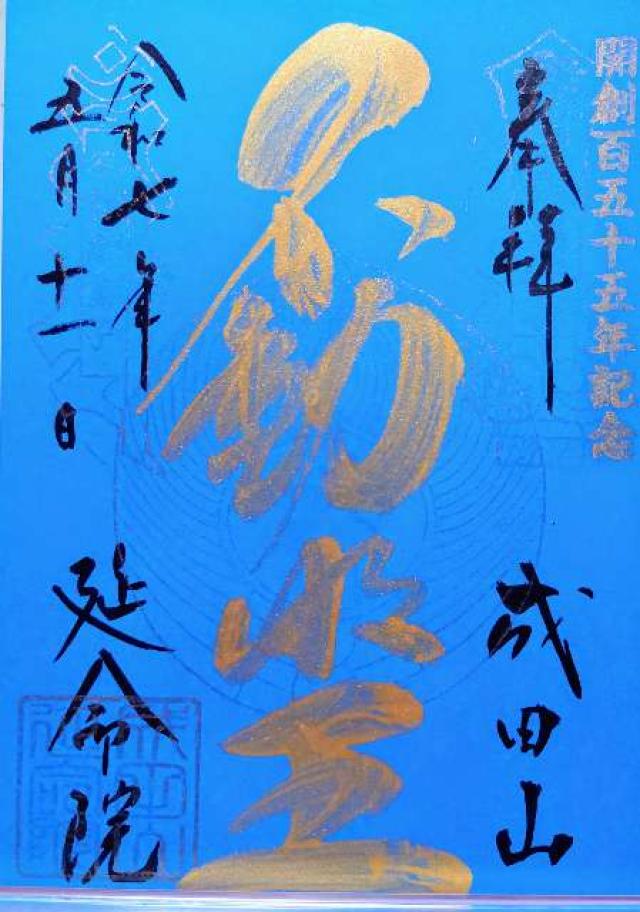 開創百五十五年記念
奉拝
成田山
不動明王
令和七年
五月十一日
延命院